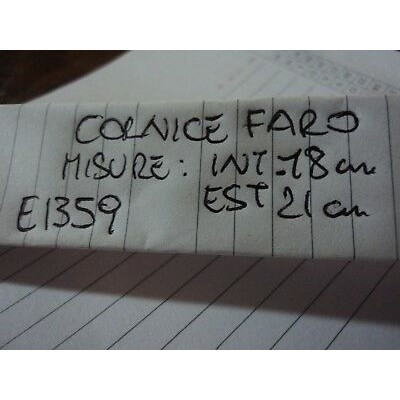 CORNICE FARO
MISURE: INT-18 cm
E1359 EST 21 cm